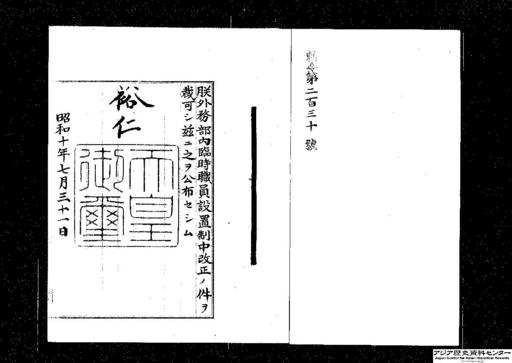 勅令第二百三十號
朕外務部內臨時職員設置制中改正ノ件ヲ
裁可シ茲ニ之ヲ公布セシム
裕仁
天皇御璽
昭和十年七月三十一日
アジア歴史資料センター
Japan Center for Asian Historical Records